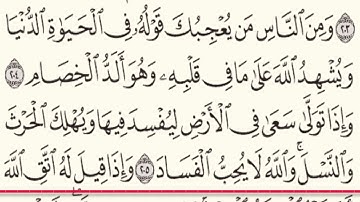 ﴿٢٠٣﴾ وَمِنَ ٱلنَّاسِ مَن يُعْجِبُكَ قَوْلُهُۥ فِى ٱلْحَيَوٰةِ ٱلدُّنْيَا
وَيُشْهِدُ ٱللَّهَ عَلَىٰ مَا فِى قَلْبِهِۦ وَهُوَ أَلَدُّ ٱلْخِصَامِ ﴿٢٠٤﴾
وَإِذَا تَوَلَّىٰ سَعَىٰ فِى ٱلْأَرْضِ لِيُفْسِدَ فِيهَا وَيُهْلِكَ ٱلْحَرْثَ
وَٱلنَّسْلَ ۗ وَٱللَّهُ لَا يُحِبُّ ٱلْفَسَادَ ﴿٢٠٥﴾ وَإِذَا قِيلَ لَهُ ٱتَّقِ ٱللَّهَ